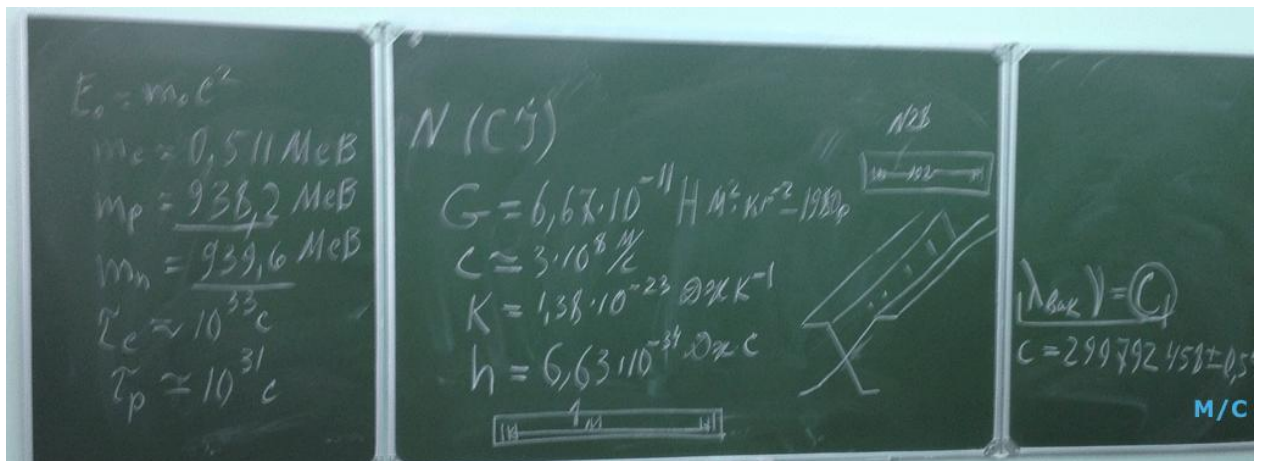 E₀ = m₀c²
mₑ ≈ 0,511 МеВ
mₚ = 938,2 МеВ
mₙ = 939,6 МеВ
τₑ ≈ 10³³ c
τₚ ≈ 10³¹ c
N (СЧ)
G = 6,67·10⁻¹¹ Н м²·кг⁻² – 1980
c ≈ 3·10⁸ м/с
K = 1,38·10⁻²³ Дж К⁻¹
h = 6,63·10⁻³⁴ Дж·с
1
м
N28
λвак ν = C
c = 299792458 ± 0,5
М/С